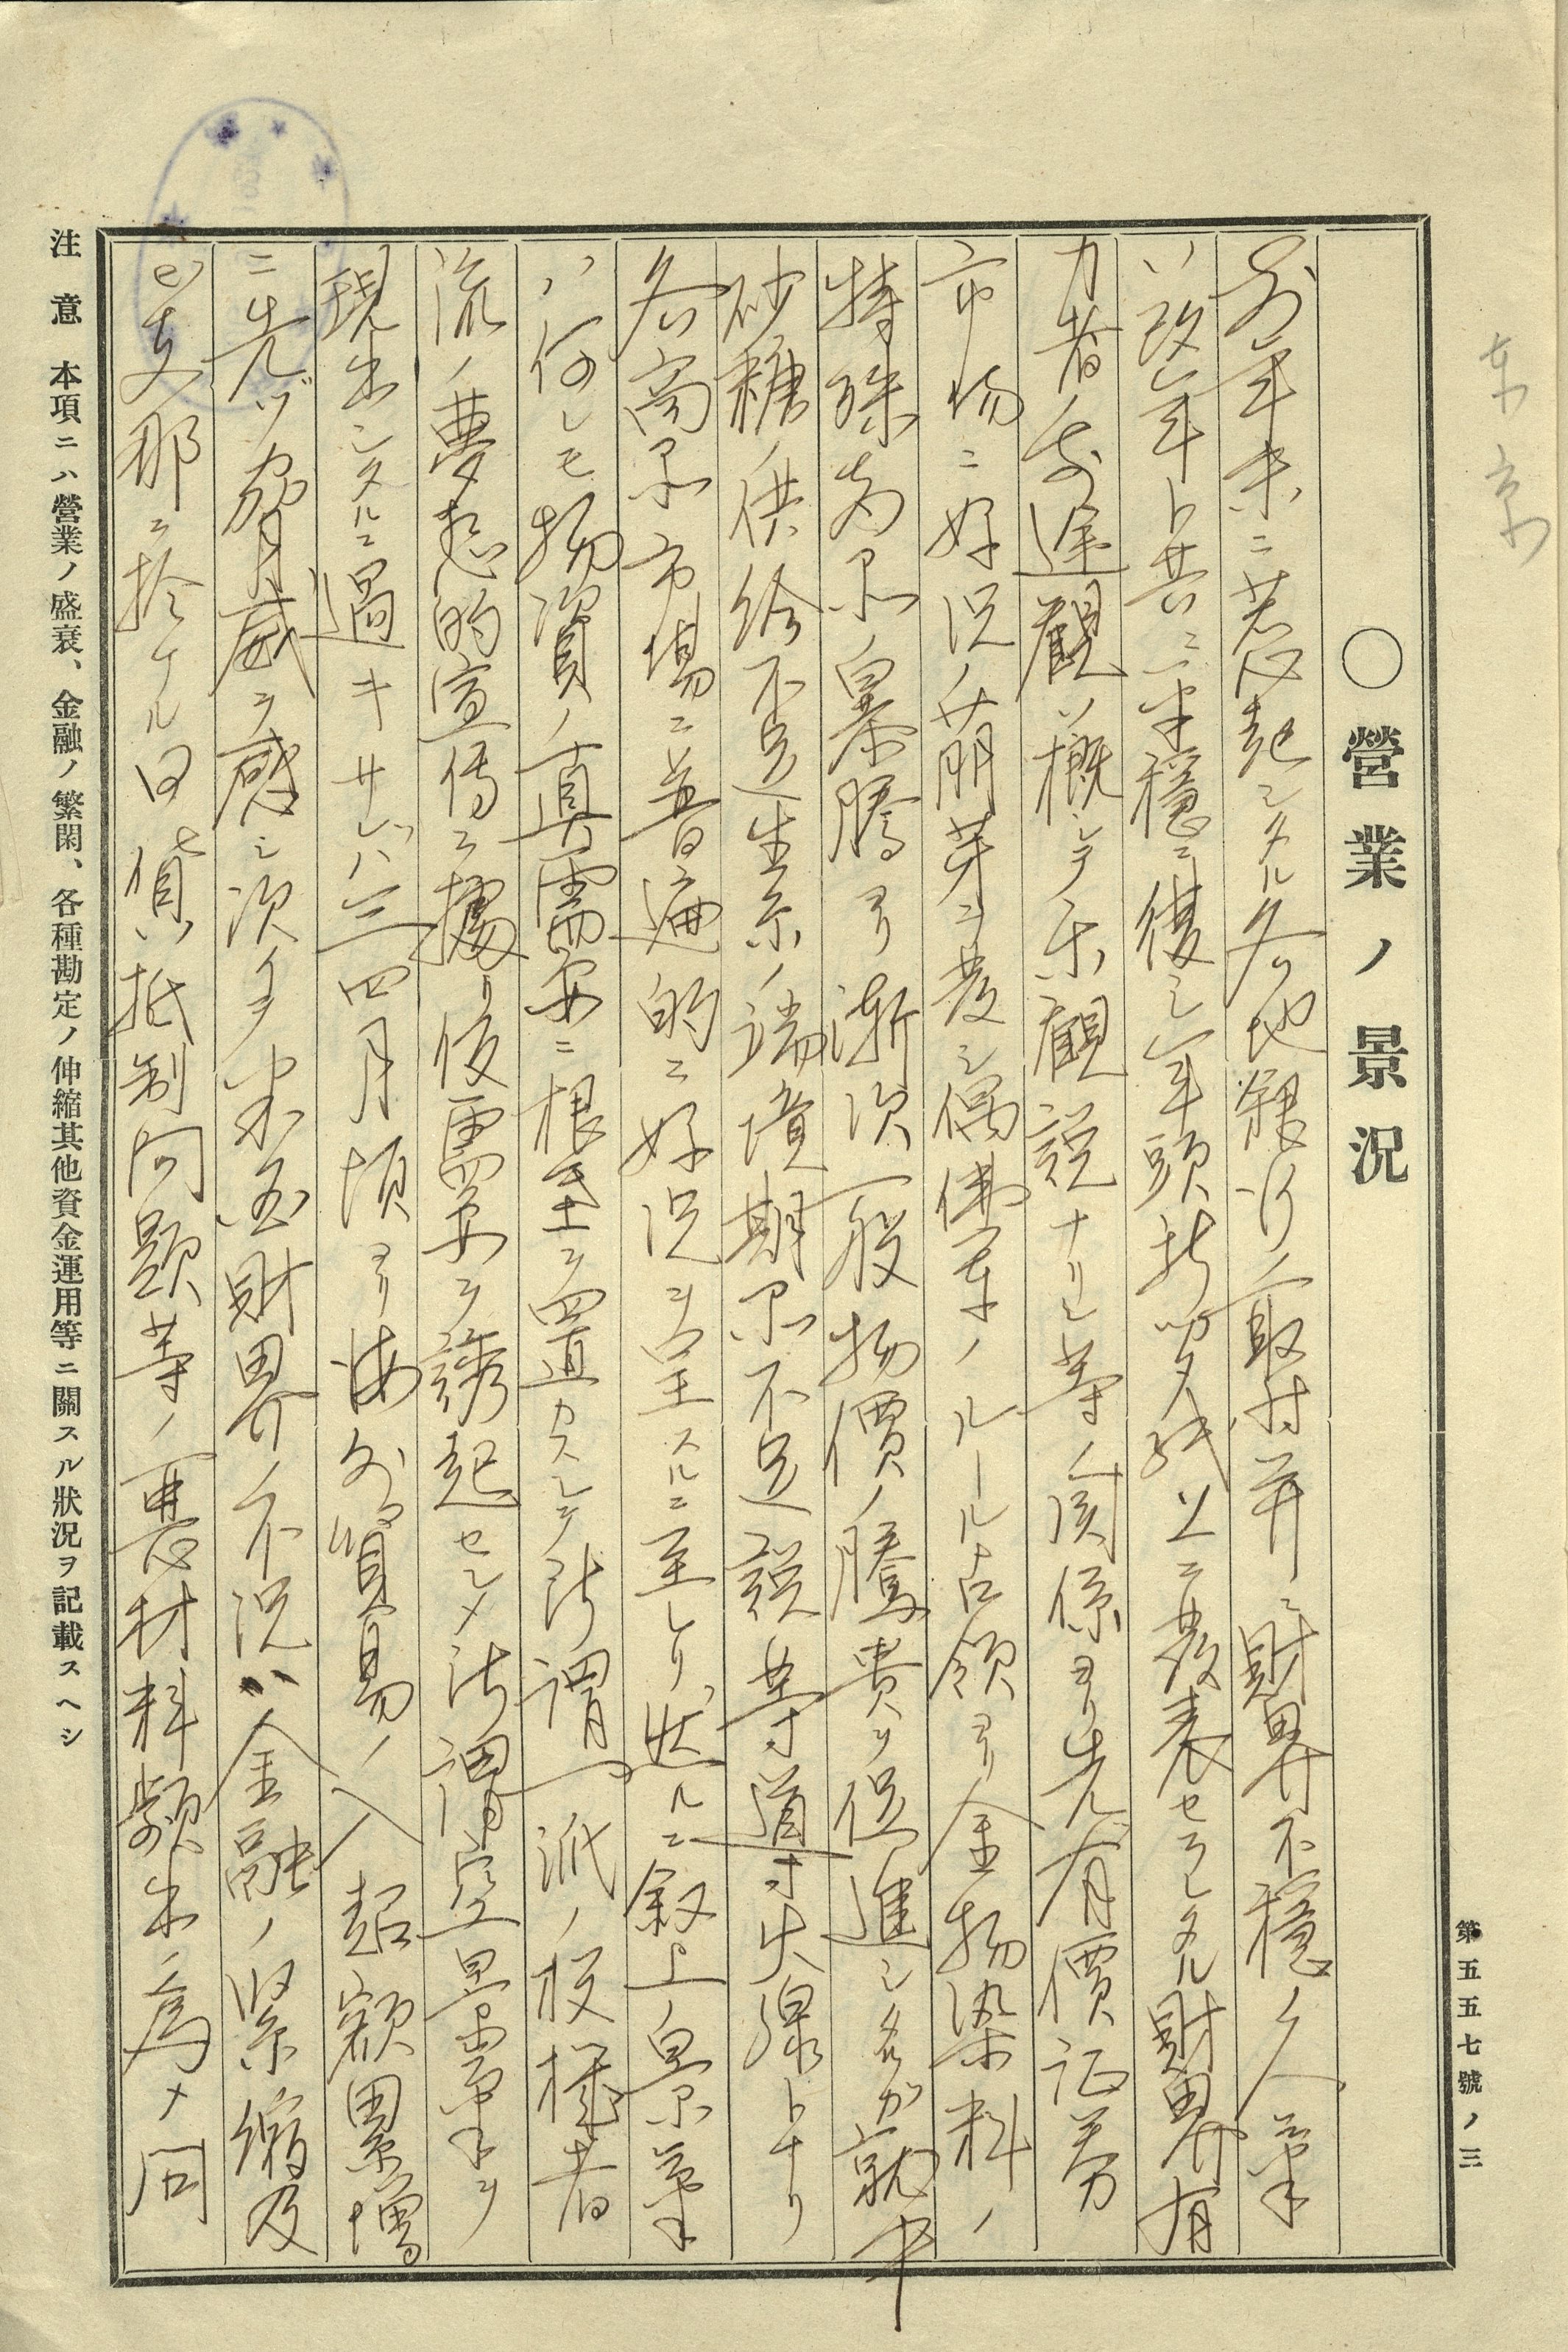 东京
〇營業ノ景況
第五五七號ノ三
前年末ニ惹起シタル各地銀行ノ取付并ニ財界不穏ノ人気
ハ改年ト共ニ平穏ニ復シ年頭新聞紙上ニ發表セラレタル財界有
力者ノ前途観ハ概シテ楽観説ナリシ等ノ関係ヨリ先ヅ有價証券
市場ニ好況ノ萠芽ヲ發シ偶佛軍ノルール占領ヨリ金物染料ノ
特殊商品ノ暴騰ヨリ漸次一般物價ノ騰貴ヲ促進シタルガ就中
砂糖ノ供給不足生糸ノ端境期品不足説等導火線トナリ
各商品市場ニ普遍的ニ好況ヲ呈スルニ至レリ、然ルニ叙上ノ景気
ハ何レモ物資ノ真需要ニ根玊ヲ置カスシテ所謂一派ノ投機者
流ノ夢想的宣傳ニ據リ仮需要ヲ誘起セシメ所謂空景気ヲ
現出シタルニ過キサレバ三四月頃ヨリ海外貿易ノ入超額累増
ニ先ヅ脅威ヲ感シ次イデ米国財界ノ不況ハ金融ノ緊縮及
ビ支那ニ於ケル日貨抵制问題等ノ悪材料頻出ノ為メ同
注意　本項ニハ營業ノ盛衰、金融ノ繁閑、各種勘定ノ伸縮其他資金運用等ニ關スル狀況ヲ記載スヘシ